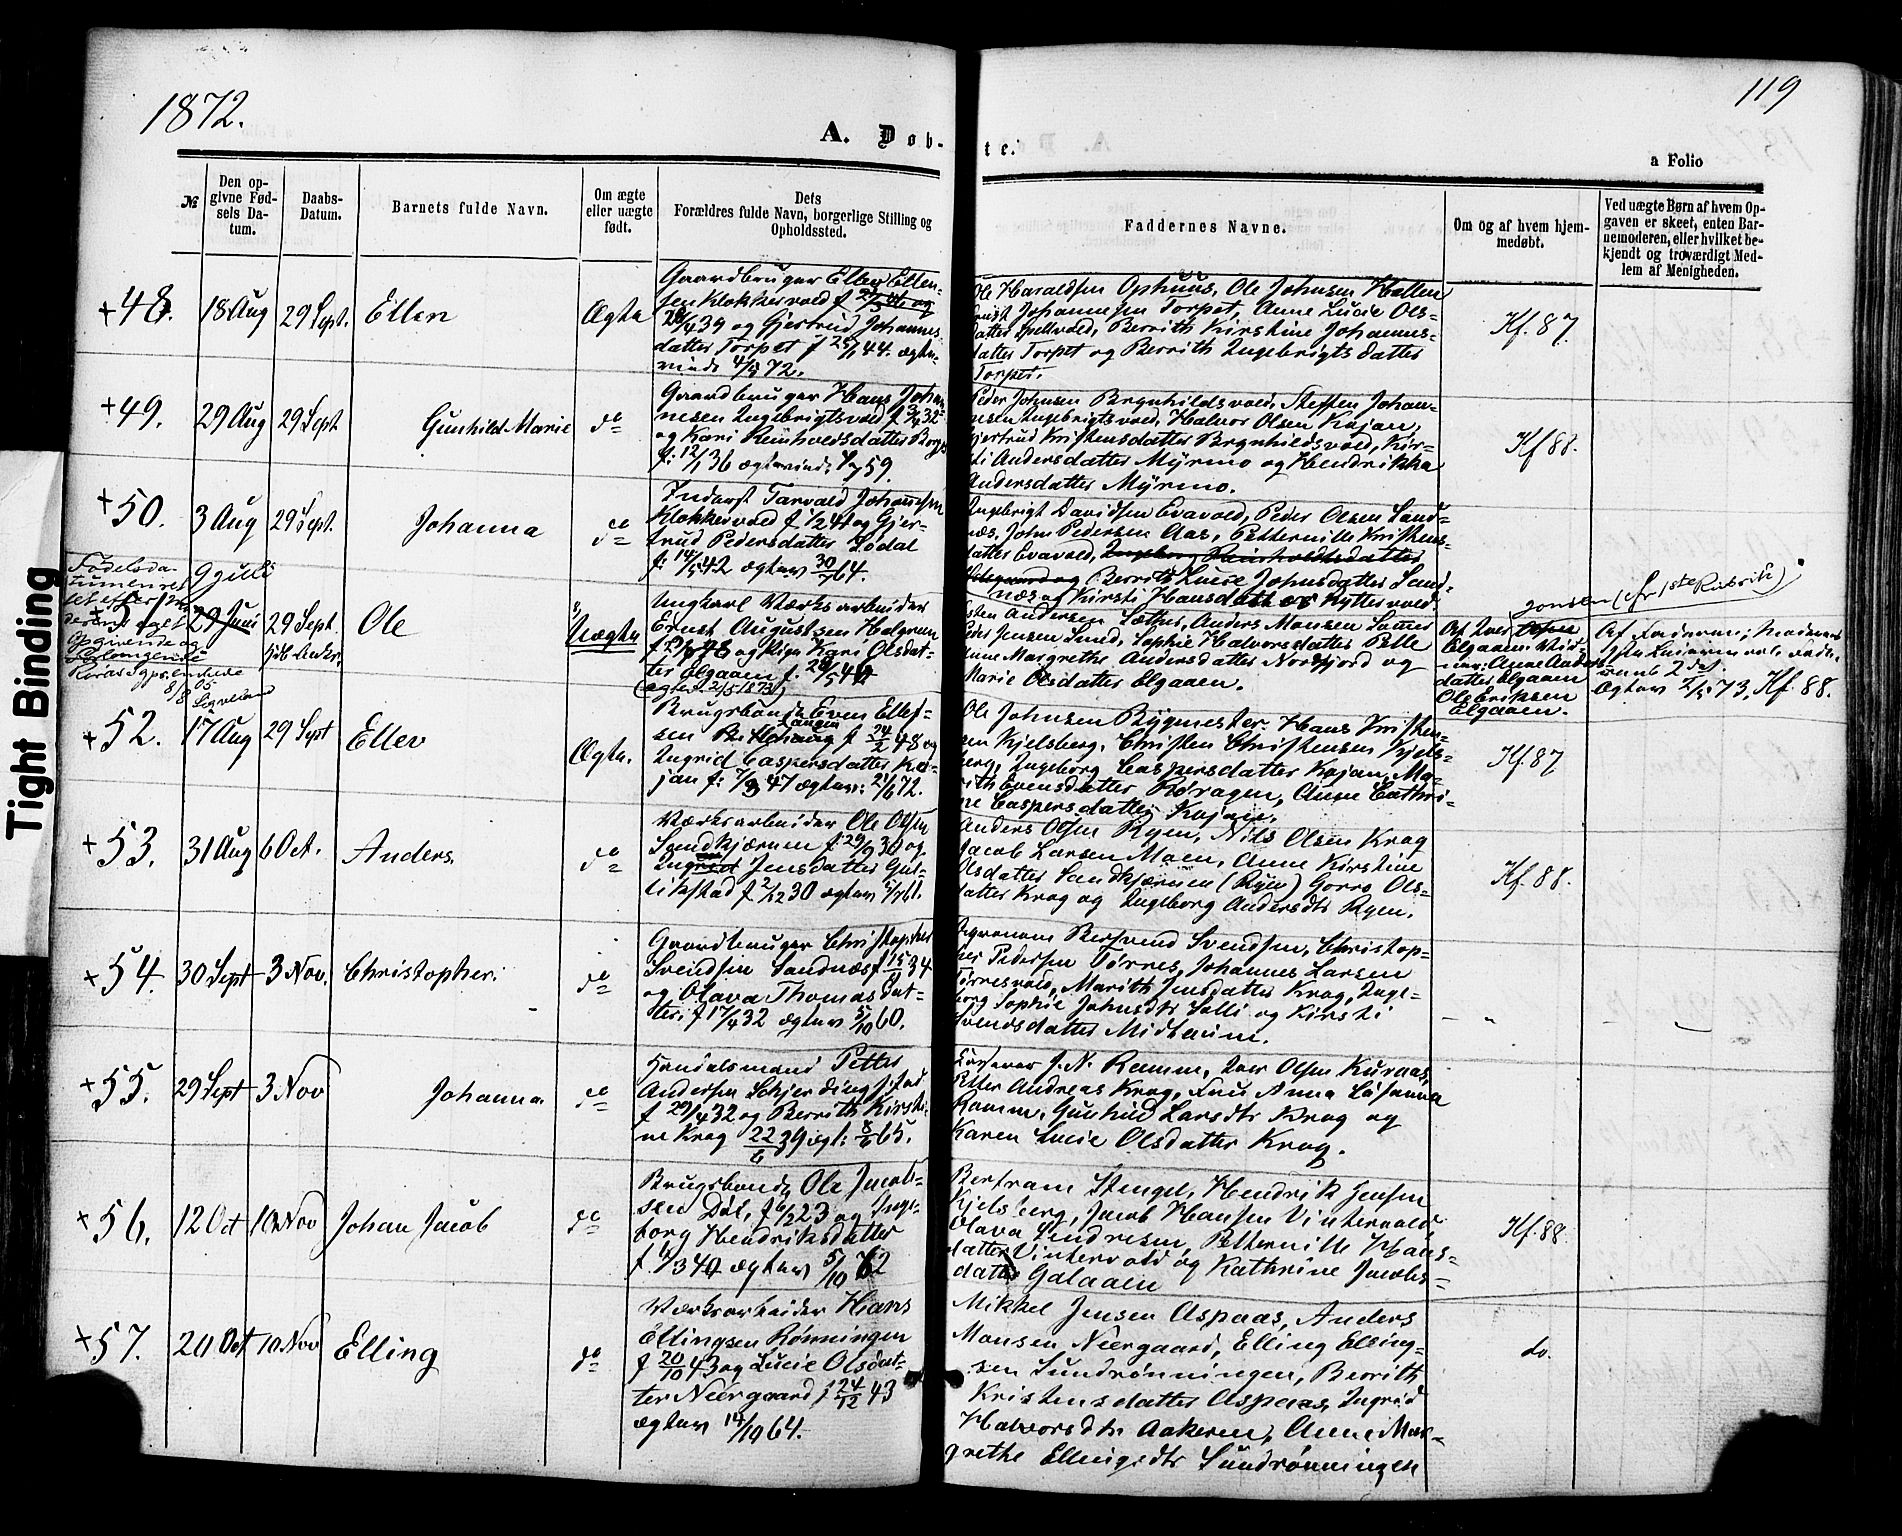 1872.
119
A. Døb-
te.
a Folio
№
Den op-
givne Fød-
sels Da-
tum.
Daabs-
Datum.
Barnets fulde Navn.
Om ægte
eller uægte
født.
Dets
Forældres fulde Navn, borgerlige Stilling og
Opholdssted.
Faddernes Navne.
Om og af hvem hjem-
medøbt.
Ved uægte Børn af hvem Op-
gaven er skeet, enten Bar-
nemoderen, eller hvilket be-
kjendt og troværdigt Med-
lem af Menigheden.
+48.
18 Aug
29 Sept.
Ellen
Ægte
Gaardbruger Ellev Ellev-
sen Klokkervold f
39 og Gjertrud Johannes
datter Torpet f 44. ægte-
viede 4/5 72.
Ole Haraldsen Ophuus, Ole Johnsen Hallen
Johannesen Torpet, Anne Lucie Ols-
datter Spellvold, Berrith Kirstine Johannes-
datter Torpet og Berrith Ingebrigtsdatter
Torpet.
Kf. 87.
+49.
29 Aug
29 Sept
Gunhild Marie
do
Gaardbruger Hans Johan-
nesen Ingebrigtsvold f 32
og Kari Reinholdsdatter Borgos
f. 12/1 36 ægteviede 59.
Peder Johnsen Brynhildsvold, Steffen Johan-
nesen Ingebrigtsvold, Halvor Olsen Kojan,
Gjertrud Kristensdatter Brynhildsvold, Kir-
sti Andersdatter Myrmo og Hendrikka
Andersdatter Myrmo.
Kf 88.
+50.
3 Aug
29 Sept.
Johanna
do
Inderst Tarvald Johannesen
Klokkervold f. 1/2 41 og Gjer-
trud Pedersdatter Lødal
f. 14/5 42 ægtev 30/7 64.
Ingebrigt Davidsen Evavold, Peder Olsen Sand-
næs, John Pedersen Aas, Petternille Kristens-
datter Evavold, Ingeborg Reinholdtsdatter
og Berrith Lucie Johnsdatter Sand-
næs og Kirsti Hansdatter Hyttevold.
Fødelsda-
tumen ret-
tet efter Mo-
derens eget
Opgivende og
Røros Sgpr.embede
8/8 05
9 Juli
29 Juni
29 Sept.
Ole
Uægte
Ungkarl Værksarbeider
Ernst Augustsen Holgren
f 48 og Pigen Kari Olsdat-
ter Elgaaen f. 28/5 40
(Ægtev. 2/5 1873)
Anders Monsen
Peder Jensen Smed, Sophie Halvorsdatter Pelle
Anne Margrethe Andersdatter Nordfjord og
Marie Olsdatter Elgaaen.
Jonsen (cfr 1ste Rubrik)
Af Iver Olsen
Elgaaen. Vid-
ner: Anne Anders
datter Elgaaen
Ole Eriksen
Elgaaen.
Af Faderen; Moderens
Ægtev 2/5 73. Kf. 88.
+52.
17 Aug
29 Sept
Ellev
Ægte.
Brugsbonde Even Ellef-
sen Langen f 24/2 48 og
Ingrid Caspersdatter Ko-
jan f. 7/3 47 ægtev: 21/6 72.
Ole Johnsen Bygmester. Hans Kristen-
sen Kjelsberg, Christen Christensen Kjels-
berg, Ingeborg Caspersdatter Kojan, Ma-
rith Evensdatter Koragen, Anne Cathri-
ne Caspersdatter Kojan.
Kf. 87
+53.
31 Aug
6 Oct.
Anders.
do
Værksarbeider Ole Olsen
Sandkjærnen f. 29/9 30 og
Jensdatter Gul-
likstad f 2/12 30 ægtev 61.
Anders Olsen Ryen, Nils Olsen Krog
Jacob Larsen Moen, Anne Kirstine
Olsdatter Sandkjærnen (Ryen) Gorro Ols-
datter Krog og Ingeborg Andersdtr Ryen.
Kf. 88.
+54.
30 Sept
3 Nov.
Christopher.
do
Gaardbruger Christopher
Svendsen Sandnæs f 34
og Olava Thomasdat-
ter f 17/4 32 ægtev 5/10 60.
Agronom Bersvend Svendsen, Christop-
her Pedersen Tørres, Johannes Larsen
Tørresvold, Marith Jensdatter Krog, Inge-
borg Sophie Johnsdtr Solli og Kirsti
Svendsdatter Midthuun.
+55.
29 Sept
3 Nov
Johanna.
do
Handelsmand Petter
Andersen Schjerdingstad
f 29/4 32 og Berrith Kirsti-
ne Krog 22/6 39 ægt: 8/6 65.
J. N. Ramm, Iver Olsen Kuraas,
Petter Andreas Krog, Fru Anna Susanna
Ramm, Gunhild Larsdtr Krog og
Karen Lucie Olsdatter Krog.
+56.
12 Oct
10 Nov
Johan Jacob
do
Brugsbonde Ole Jacob-
sen Døl, f 23 og Inge-
borg Hendriksdatter
f. 1/3 40 ægtev 5/10 62
Bertram Stengel, Hendrik Jensen
Kjelsberg, Jacob Hansen Vintervold
Olava Hendresen, Petternille Hans-
datter Vintervold og Kathrine Jacobs-
datter Galaaen
Kf. 88.
+57.
20 Oct
10 Nov
Elling
do
Værksarbeider Hans
Ellingsen Rønningen
f 20/10 43 og Lucie Olsdat-
ter Neergaard f 24/12 43
ægtev 14/10 64.
Mikkel Jensen Aspaas, Anders
Monsen Neergaard, Elling Elling-
sen Sundrønningen, Berrith
Kristensdatter Aspaas, Ingrid
Halvorsdtr Aakeren, Anne Mar-
grethe Ellingsdtr Sundrønningen
do.
Tight Binding